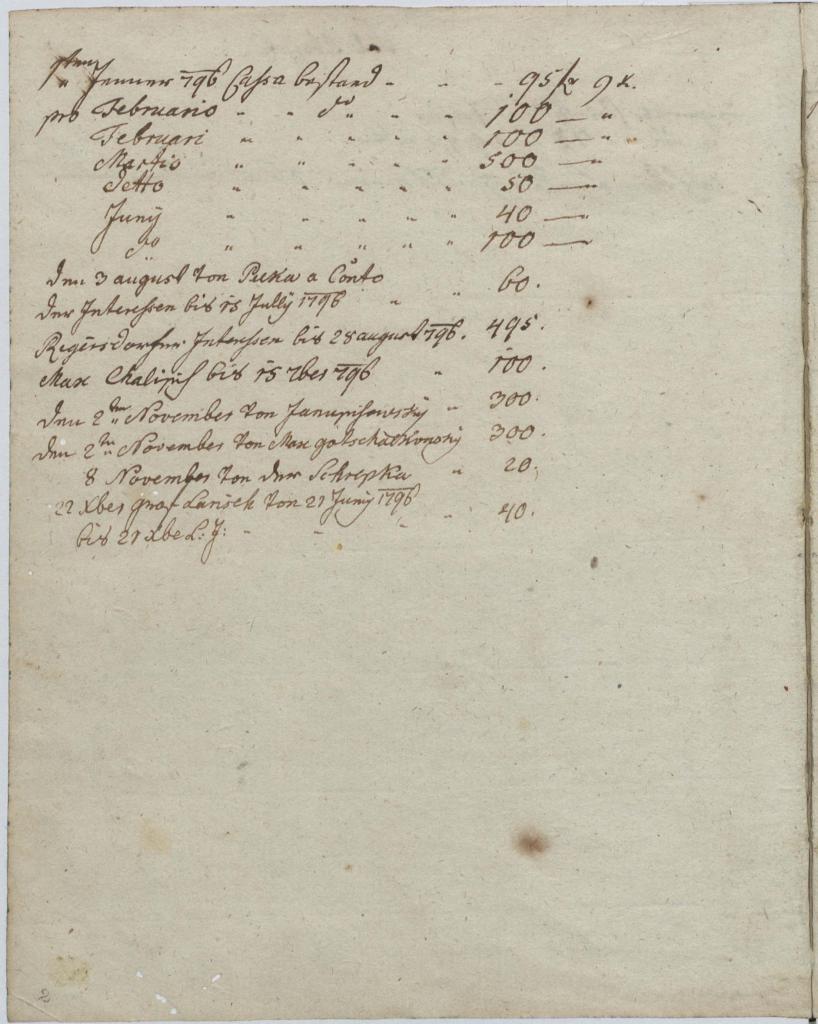 1ten Jenner 796 Cassa bestand - - - 95 fr 9 x.
pro Februario " " do " " " 100 — "
Februari " " " " " 100 — "
Martio " " " " " 500 — "
Detto " " " " " 50 — "
Juny " " " " " 40 — "
do " " " " " 100 — "
den 3 august von Pucka a Conto 60.
der Interessen bis 15 Jully 1796 " "
Rigersdorfer Interessen bis 28 august 796. 495.
Max bis 15 7ber 796 " 100.
den 2ten November von " 300.
den 2ten November von Max 300.
8 November von der Schrepka " 20.
22 Xber graf Larisch von 21 Juny 1796
bis 21 Xbe L: J: - - - " 40.
2